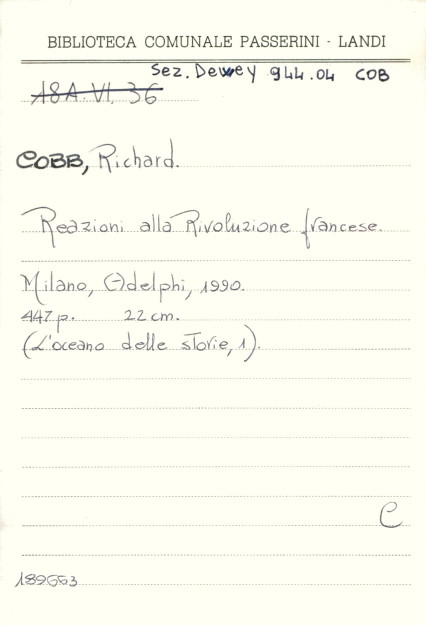 BIBLIOTECA COMUNALE PASSERINI - LANDI
Sez. Dewey 944.04 COB
18A.VI.36
COBB, Richard.
Reazioni alla Rivoluzione francese.
Milano, Adelphi, 1990.
447 p. 22 cm.
(L'oceano delle storie, 1).
C
189663